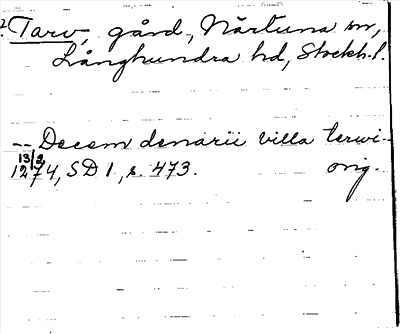 ? Tarv, gård, Närtuna sn,
Långhundra hd, Stockh. l.
-- Decem denarii villa terwi-
13/2
1274, SD 1, s. 473. orig.